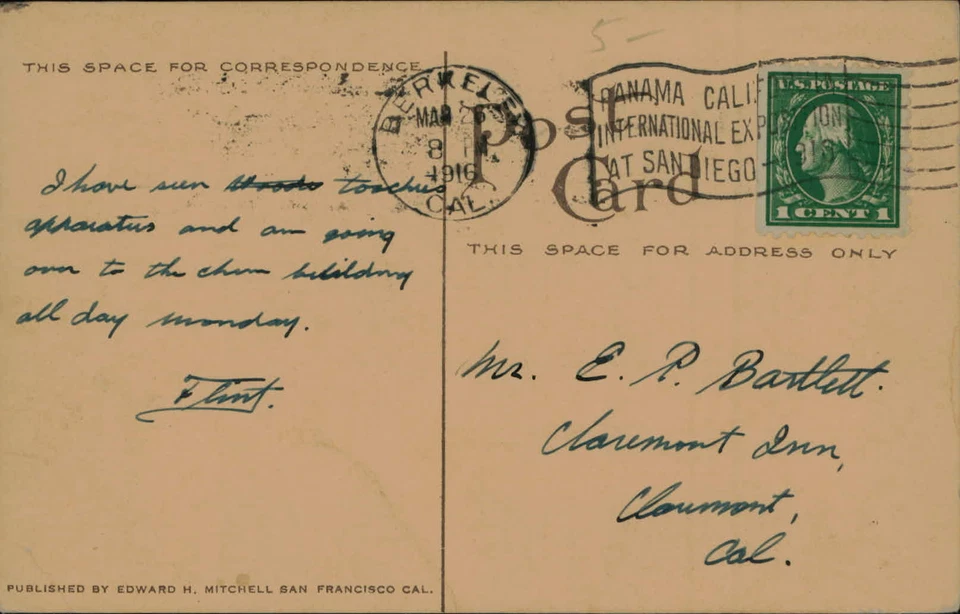 5-
THIS SPACE FOR CORRESPONDENCE
BERKELEY
MAR 26
8
1916
CAL.
Post
Card
PANAMA CALIF
INTERNATIONAL EXPOSITION
AT SAN DIEGO
U.S. POSTAGE
1 CENT 1
THIS SPACE FOR ADDRESS ONLY
I have seen
apparatus and am going
over to the chem building
all day monday.
Flint.
Mr. E. P. Bartlett.
Claremont Inn,
Claremont,
Cal.
PUBLISHED BY EDWARD H. MITCHELL SAN FRANCISCO CAL.